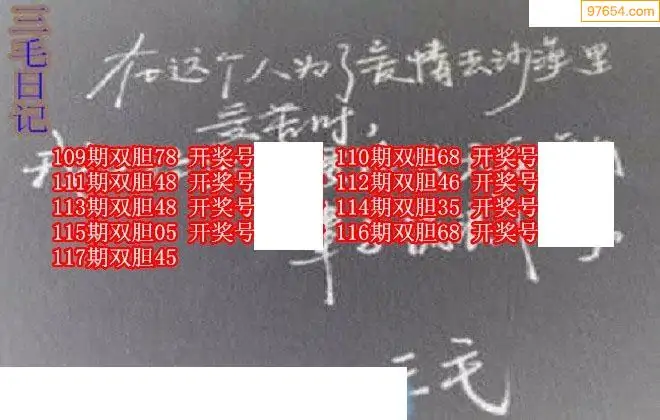 97654.com
三毛日记
在这个人为了爱情去沙漠里
受苦时,
109期双胆78 开奖号
110期双胆68 开奖号
111期双胆48 开奖号
112期双胆46 开奖号
113期双胆48 开奖号
114期双胆35 开奖号
115期双胆05 开奖号
116期双胆68 开奖号
117期双胆45
三毛